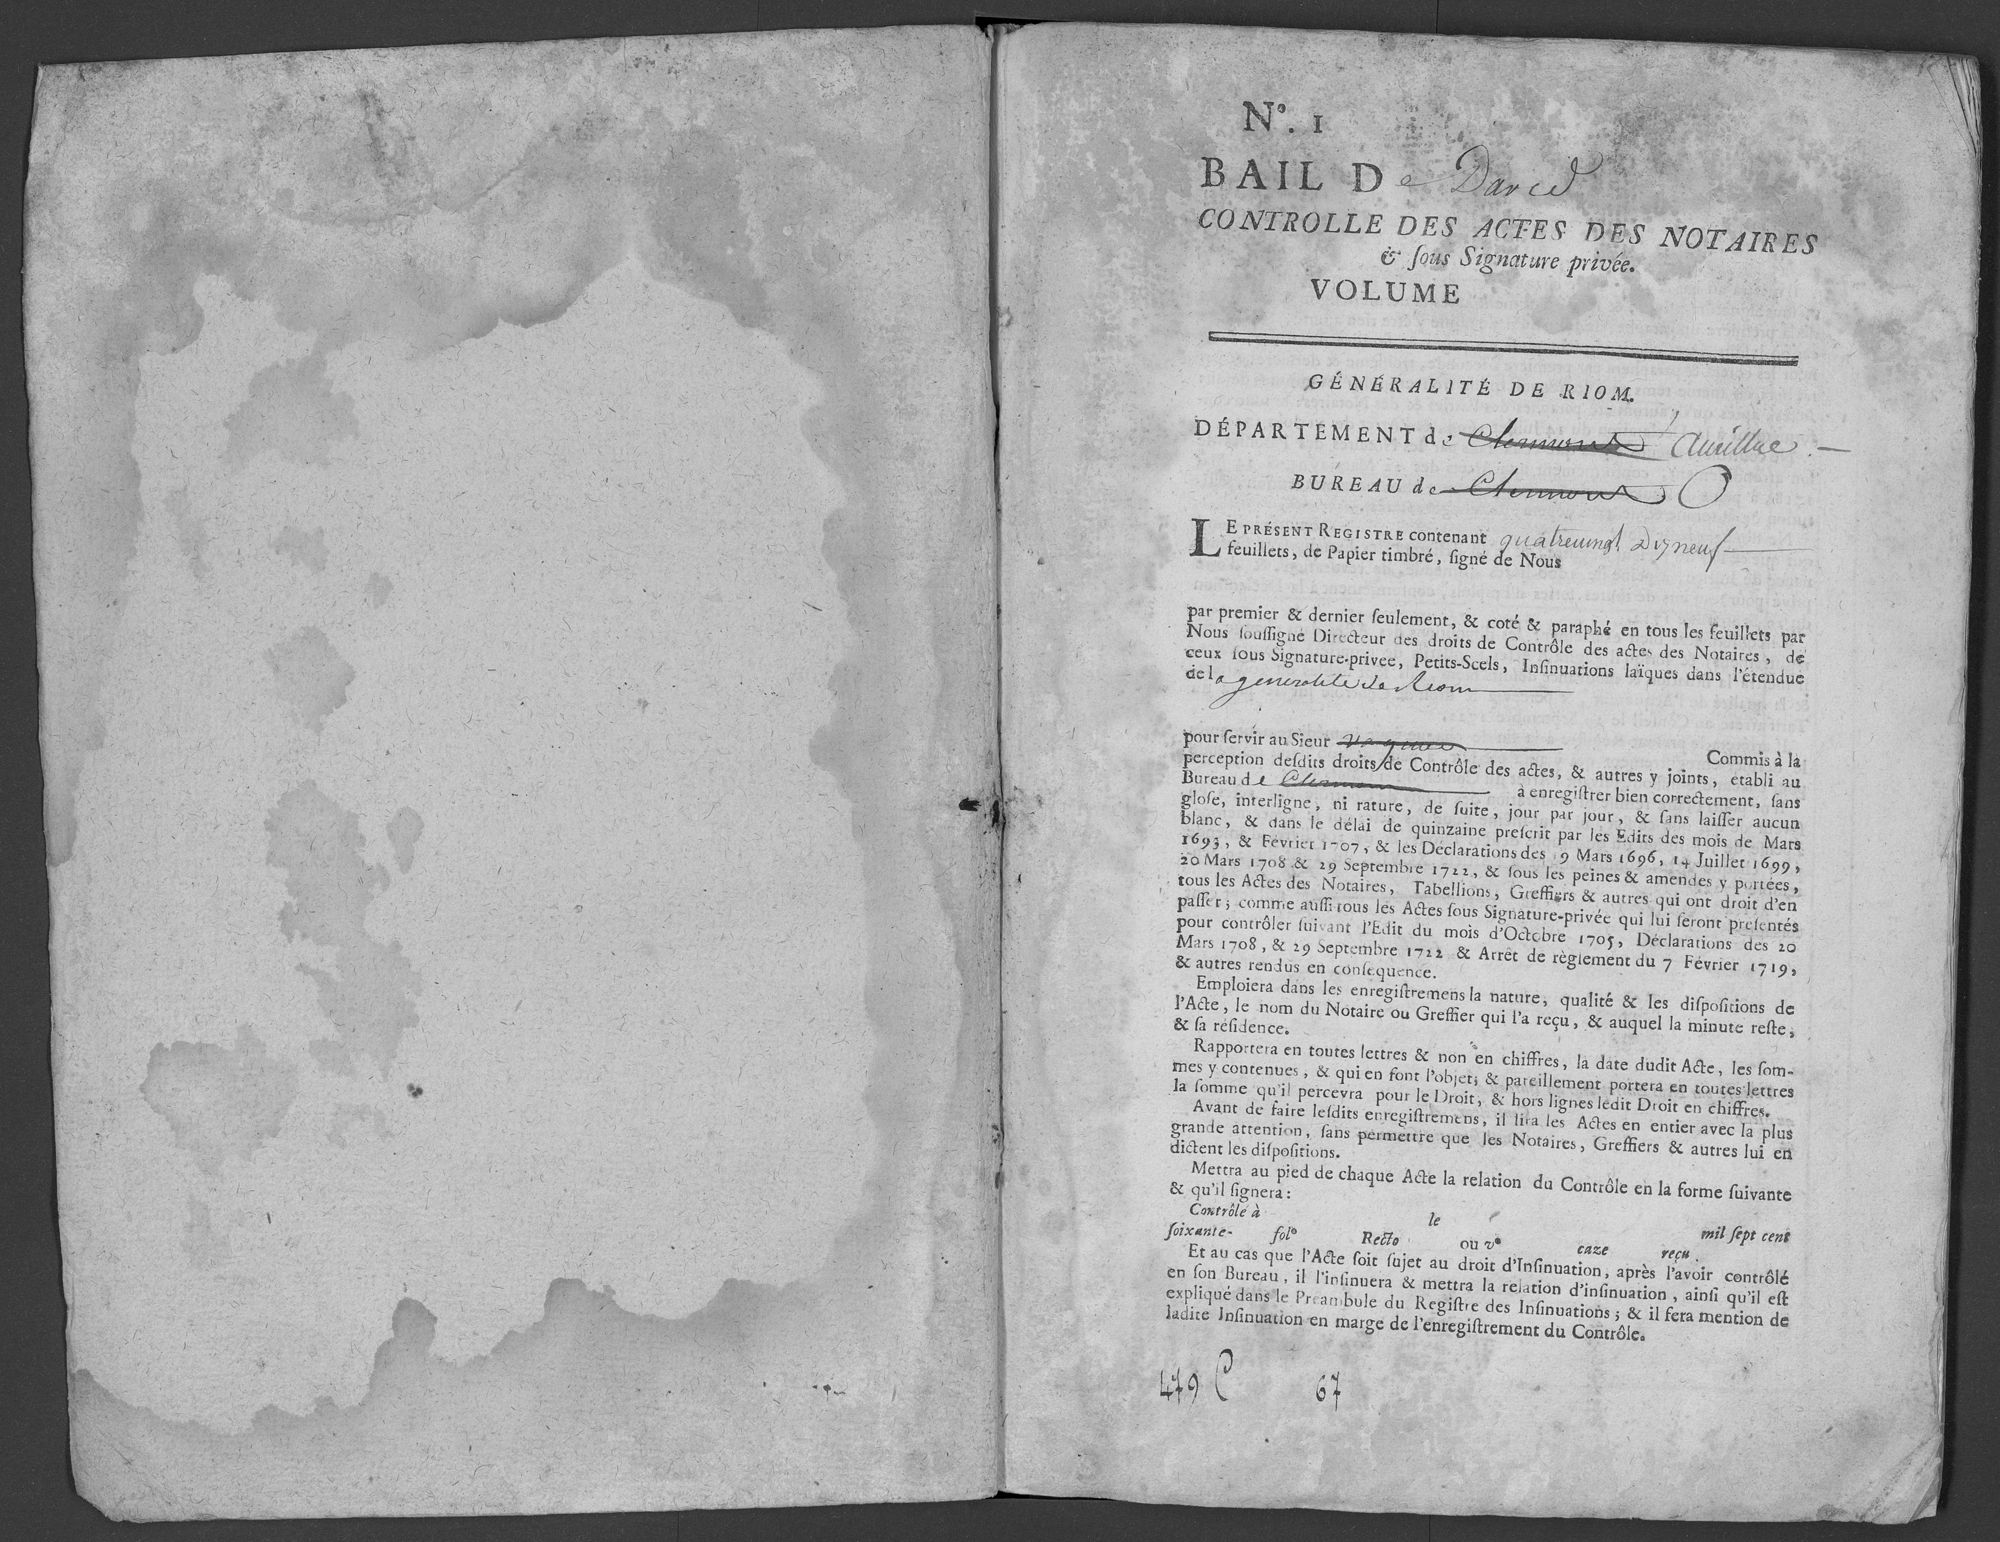 Nº. I
BAIL De David
CONTROLLE DES ACTES DES NOTAIRES
& ſous Signature privée.
VOLUME
GÉNÉRALITÉ DE RIOM.
DÉPARTEMENT de Clermont d'Aurillac
BUREAU de Clermont
LE PRÉSENT REGISTRE contenant quatrevingt Dixneuf
feuillets, de Papier timbré, ſigné de Nous
par premier & dernier ſeulement, & coté & paraphé en tous les feuillets par
Nous ſouſſigné Directeur des droits de Contrôle des actes des Notaires, de
ceux ſous Signature-privée, Petits-Scels, Inſinuations laïques dans l'étendue
de la generalité de Riom
pour ſervir au Sieur Commis à la
perception deſdits droits de Contrôle des actes, & autres y joints, établi au
Bureau de Clermont à enregiſtrer bien correctement, ſans
gloſe, interligne, ni rature, de ſuite, jour par jour, & ſans laiſſer aucun
blanc, & dans le délai de quinzaine preſcrit par les Edits des mois de Mars
1693, & Février 1707, & les Déclarations des 19 Mars 1696, 14 Juillet 1699,
20 Mars 1708 & 29 Septembre 1722, & ſous les peines & amendes y portées,
tous les Actes des Notaires, Tabellions, Greffiers & autres qui ont droit d'en
paſſer; comme auſſi tous les Actes ſous Signature-privée qui lui ſeront préſentés
pour contrôler ſuivant l'Edit du mois d'Octobre 1705, Déclarations des 20
Mars 1708, & 29 Septembre 1722 & Arrêt de règlement du 7 Février 1719,
& autres rendus en conſequence.
Emploiera dans les enregiſtremens la nature, qualité & les diſpoſitions de
l'Acte, le nom du Notaire ou Greffier qui l'a reçu, & auquel la minute reſte,
& ſa réſidence.
Rapportera en toutes lettres & non en chiffres, la date dudit Acte, les ſom-
mes y contenues, & qui en font l'objet; & pareillement portera en toutes lettres
la ſomme qu'il percevra pour le Droit, & hors lignes ledit Droit en chiffres.
Avant de faire leſdits enregiſtremens, il lira les Actes en entier avec la plus
grande attention, ſans permettre que les Notaires, Greffiers & autres lui en
dictent les diſpoſitions.
Mettra au pied de chaque Acte la relation du Contrôle en la forme ſuivante
& qu'il ſignera:
Contrôlé à le mil ſept cent
ſoixante- folº Recto ou vº caze reçu
Et au cas que l'Acte ſoit ſujet au droit d'Inſinuation, après l'avoir contrôlé
en ſon Bureau, il l'inſinuera & mettra la relation d'inſinuation, ainſi qu'il eſt
expliqué dans le Préambule du Regiſtre des Inſinuations; & il fera mention de
ladite Inſinuation en marge de l'enregiſtrement du Contrôle.
479 C 67